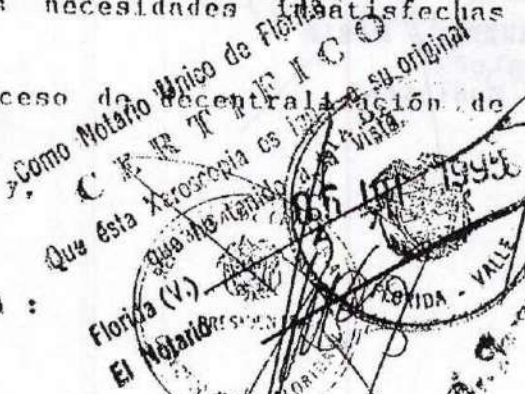 necesidades insatisfechas
ceso de decentralización de
y,
:
Como Notario Unico de Florida
C E R T I F I C O
Que ésta Xeroscopia es igual a su original
que he tenido a la vista.
05 JUL 1995
Florida (V.)
El Notario
PRESIDEN
FLORIDA - VALLE